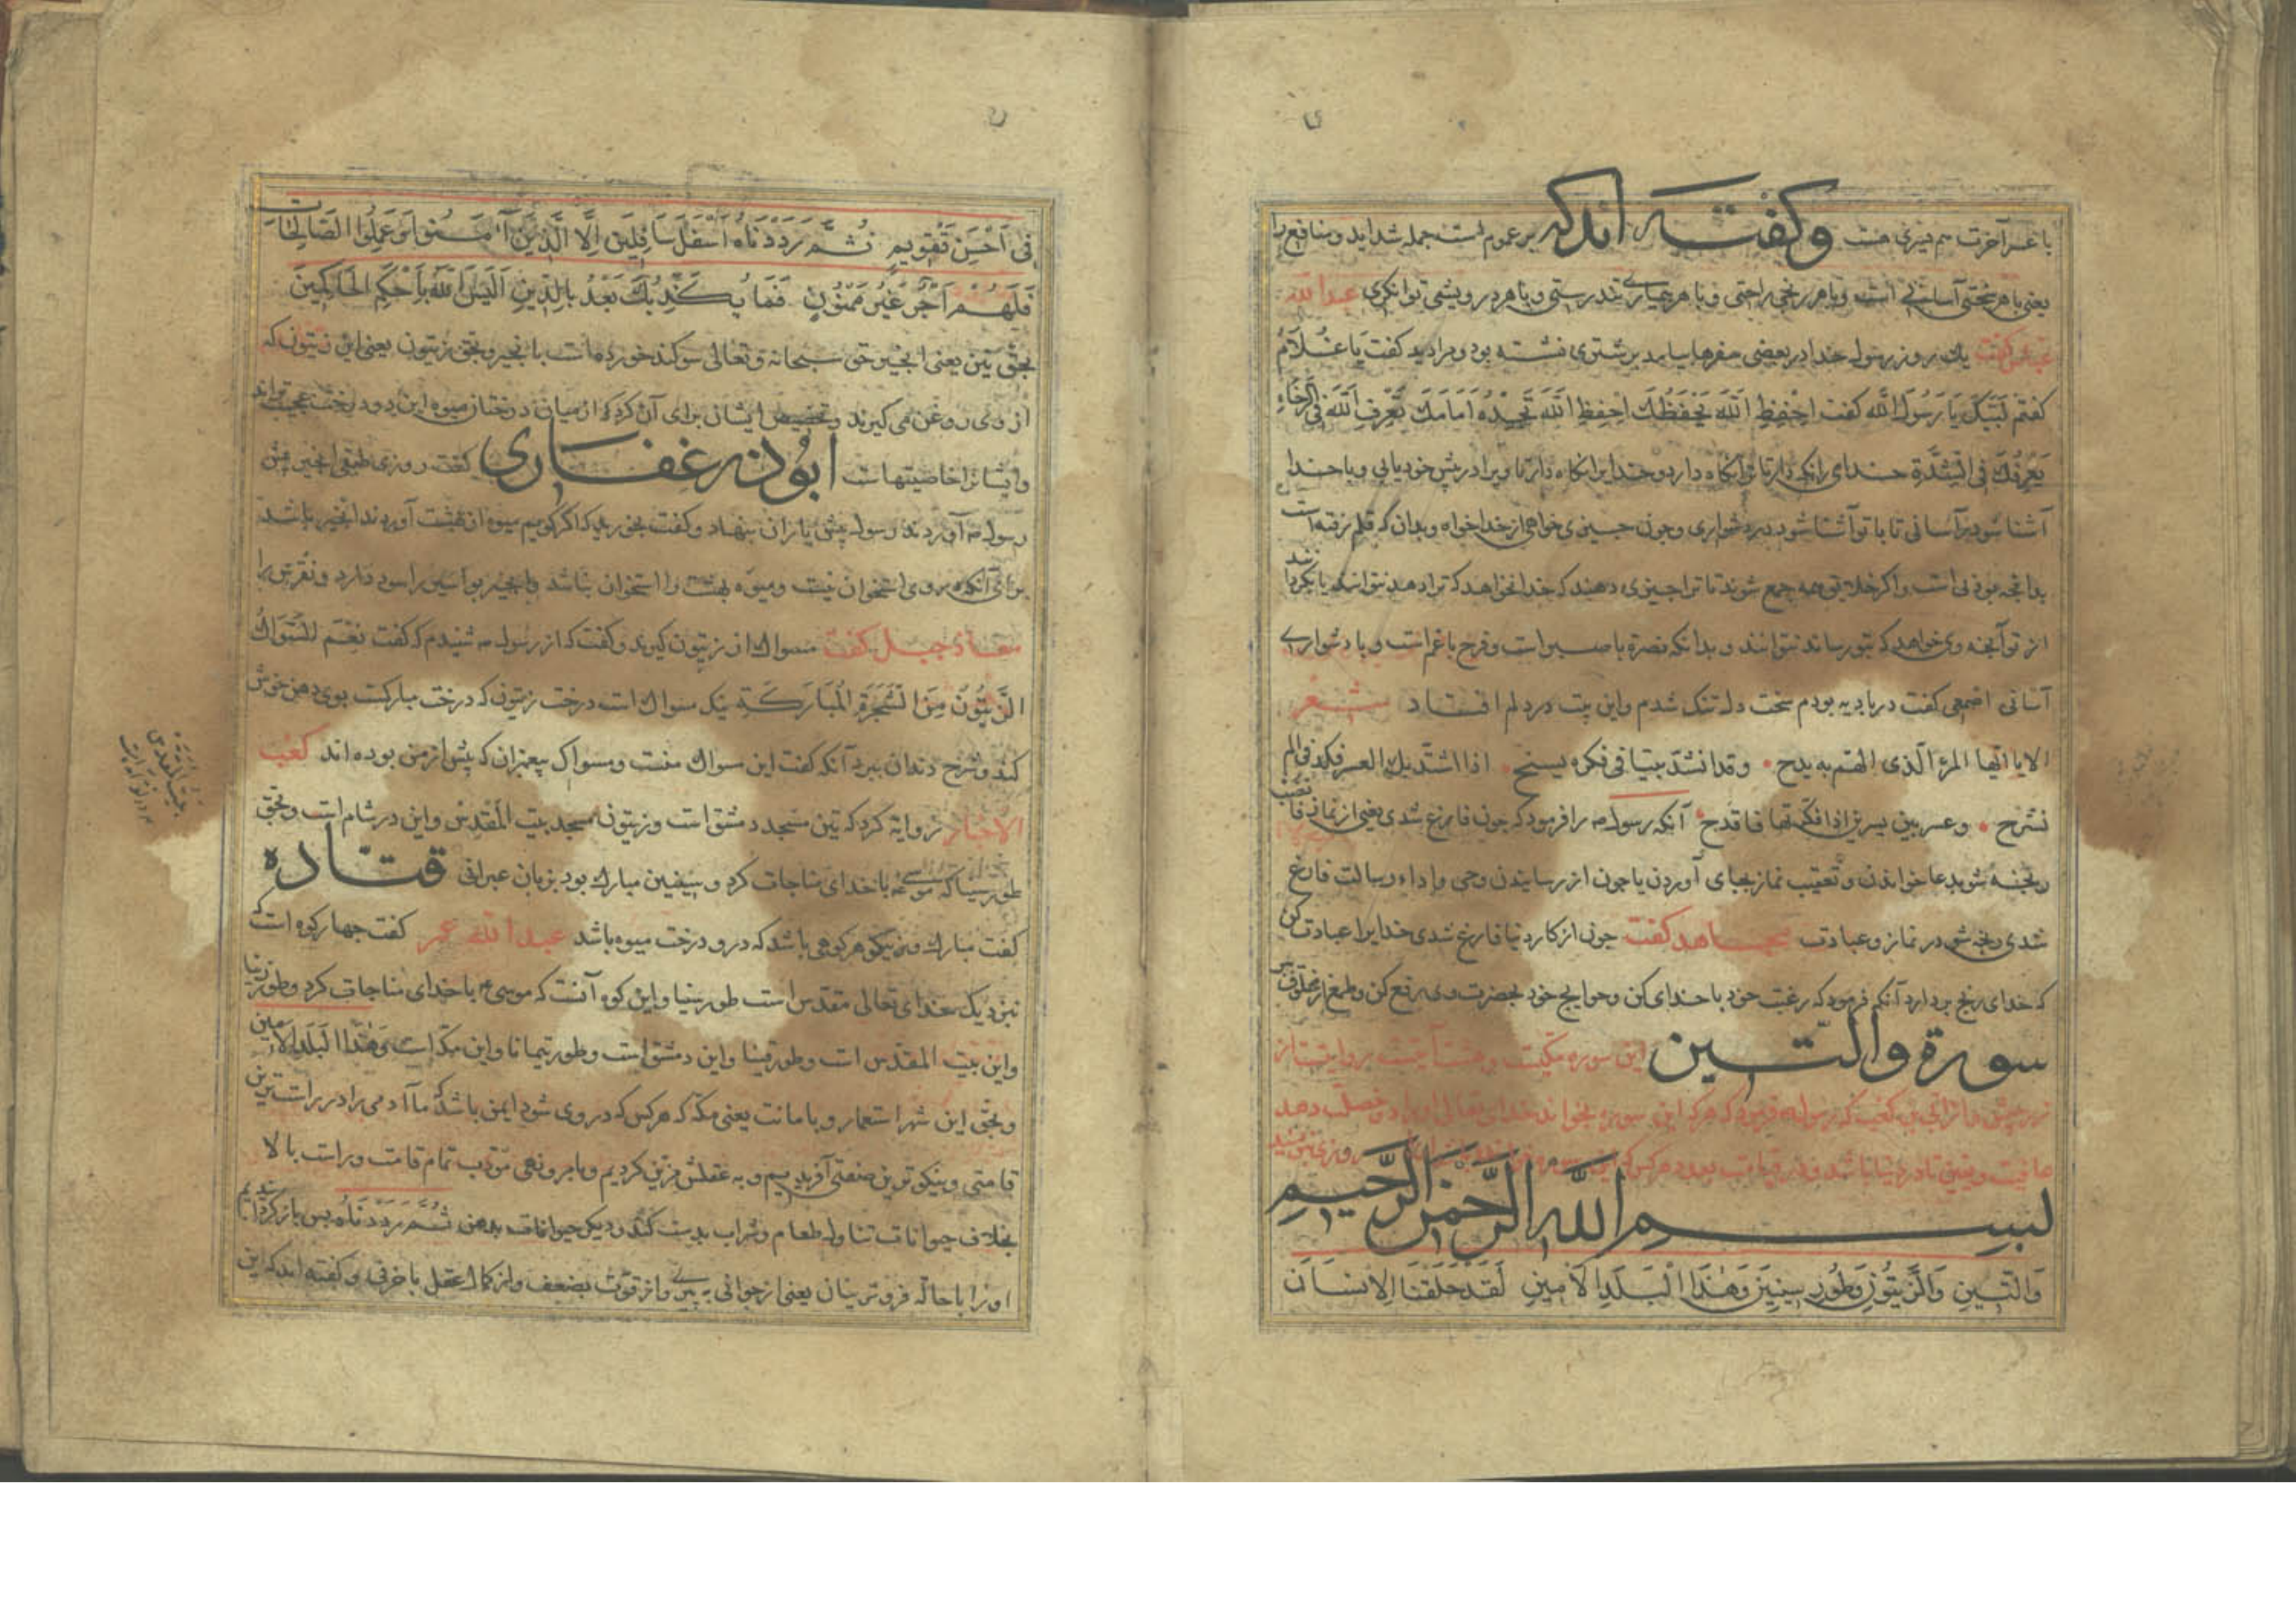 با عسر آخرت هم یسری هست وکفته اندکه بر عموم است جمله شداید و منافع را
یعنی با هر سختی آسانی است و با هر رنجی راحتی و با هر بیماری تندرستی و با هر درویشی توانکری عبدالله
عباس کفت یک روز رسول خدا در بعضی سفرها بیامد بر شتری نشسته بود و مرا دید کفت یَا غُلَامُ
کفتم لَبَّیْکَ یَا رَسُولَ اللَّه کفت اِحْفِظِ اللَّهَ یَحْفَظْكَ اِحْفِظِ اللَّهَ تَجِدْهُ اَمَامَكَ تَعَرَّفْ اِلَی اللَّهِ فِی الرَّخَاءِ
یَعْرِفْكَ فِی الشِّدَّةِ خدای را نکه دار تا ترا نکاه دارد و خدایرا نکاه دار تا ویرا در پیش خود یابی و با خدا
آشنا شو در آسانی تا با تو آشنا شود در دشواری و چون چیزی خواهی از خدا خواه و بدان که قلم رفته است
بدانچه بودنی است و اکر خلایق همه جمع شوند تا ترا چیزی دهند که خدا نخواهد که ترا دهد نتوانند یا بکردانند
از تو آنچه وی خواهد که بتو رساند نتوانند و بدانکه نصرة با صبر است و فرح با غم است و با دشواری
آسانی اصمعی کفت در بادیه بودم سخت دل تنک شدم و این بیت در دلم افتاد شعر
الا یا ایها المرء الذی الهم به بدح وقد انشد بیتا فی فکره یسنح اذا اشتد بك العسر ففکر فی الم
نشرح وعسر بین یسرین اذا فکرتها فافدح آنکه رسول را فرمود که چون فارغ شدی یعنی از نماز فانصب
رنجه شو بدعا خواندن و تعقیب نماز بجای آوردن یا چون از رسانیدن وحی و اداء رسالت فارغ
شدی رنجه شو در نماز و عبادت مجاهد کفت چون از کار دنیا فارغ شدی خدایرا عبادت کن
که خدای رنج بردارد آنکه فرمود که رغبت خود با خدای کن و حوایج خود بحضرت وی رفع کن و طمع از مخلوق ببر
سورة والتین این سوره مکیست و هشت آیتست بروایت از
زر بن حبیش و از ابی بن کعب که رسول فرمود که هر که این سوره بخواند خدای تعالی او را دو خصلت دهد
عافیت و یقین تا در دنیا باشد و در قیامت بعدد هر کس که این سوره
بسم الله الرحمن الرحیم
وَالتِّینِ وَالزَّیْتُونِ وَطُورِ سِینِینَ وَهٰذَا الْبَلَدِ الْاَمِینِ لَقَدْ خَلَقْنَا الْاِنْسَانَ
فِی اَحْسَنِ تَقْوِیمٍ ثُمَّ رَدَدْنَاهُ اَسْفَلَ سَافِلِینَ اِلَّا الَّذِینَ آمَنُوا وَعَمِلُوا الصَّالِحَاتِ
فَلَهُمْ اَجْرٌ غَیْرُ مَمْنُونٍ فَمَا یُکَذِّبُكَ بَعْدُ بِالدِّینِ اَلَیْسَ اللَّهُ بِاَحْکَمِ الْحَاکِمِینَ
بحق تین یعنی انجیر حق سبحانه و تعالی سوکند خورده است بانجیر و بحق زیتون یعنی این زیتون که
از وی روغن می کیرند و تخصیص ایشان برای آن کرد که از میان درختان میوه این دو درخت عجیب تراند
و ایشانرا خاصیتهاست ابوذر غفاری کفت روزی طبقی انجیر پیش
رسول آوردند رسول پیش یاران بنهاد و کفت بخورید که اکر کویم میوه از بهشت آوردند انجیر باشد
برای آنکه در وی استخوان نیست و میوه بهشت را استخوان نباشد و انجیر بواسیر را سود دارد و نقرس را
معاذ جبل کفت مسواك از زیتون کیرید و کفت که از رسول شنیدم که کفت نِعْمَ السِّوَاكُ
الزَّیْتُونُ مِنَ الشَّجَرَةِ الْمُبَارَکَةِ نیک سواك است درخت زیتون که درخت مبارکست بوی دهن خوش
کند و شرح دندان ببرد آنکه کفت این سواك منست و مسواک پیغمبران که پیش از من بوده اند کعب
الاحبار روایة کرد که تین مسجد دمشق است و زیتون مسجد بیت المقدس و این در شام است و بحق
طور سینا که موسی با خدای مناجات کرد و سینین مبارك بود بزبان عبرانی قتاده
کفت مبارك و نیکو هر کوهی باشد که در و درخت میوه باشد عبدالله عمر کفت چهار کوه است که
نزدیک خدای تعالی مقدس است طور سینا و این کوه آنست که موسی با خدای مناجات کرد و طور زیتا
و این بیت المقدس است و طور تینا و این دمشق است و طور تیمانا و این مکه است وَهٰذَا الْبَلَدِ الْاَمِین
و بحق این شهر استعمار و با مانت یعنی مکه که هر کس که در وی شود ایمن باشد که ما آدمی را در راست ترین
قامتی و نیکوترین صنعتی آفریدیم و به عقلش مزین کردیم و بامر و نهی مؤدب تمام قامت و راست بالا
بخلاف حیوانات تناول طعام و شراب بدست کند و دیکر حیوانات بدهن ثُمَّ رَدَدْنَاهُ پس باز کردانیدیم
او را با حال فروتر ینان یعنی از جوانی به پیری و از قوت بضعف و از کمال عقل با خرفی و کفته اند که این